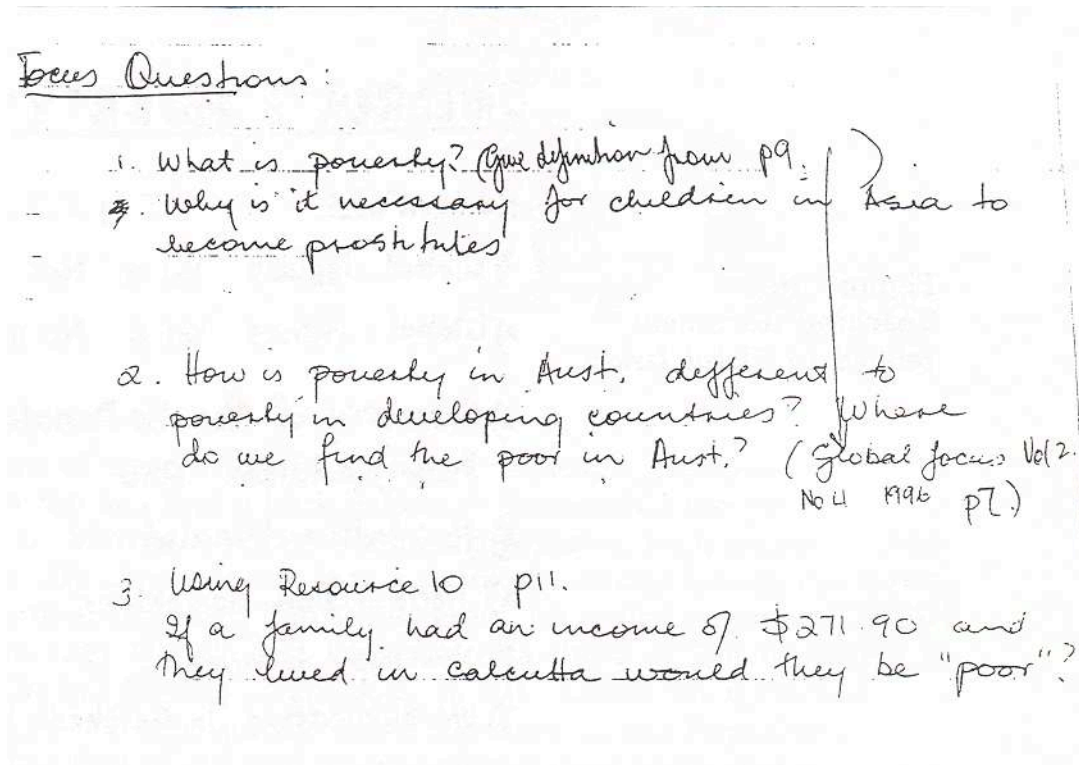 Focus Questions:
1. What is poverty? (Give definition from p9. )
Why is it necessary for children in Asia to
become prostitutes
2. How is poverty in Aust. different to
poverty in developing countries? Where
do we find the poor in Aust.? (Global focus Vol 2.
No 4 1996 p7.)
3. Using Resource 10 p11.
If a family had an income of $271.90 and
they lived in calcutta would they be "poor"?